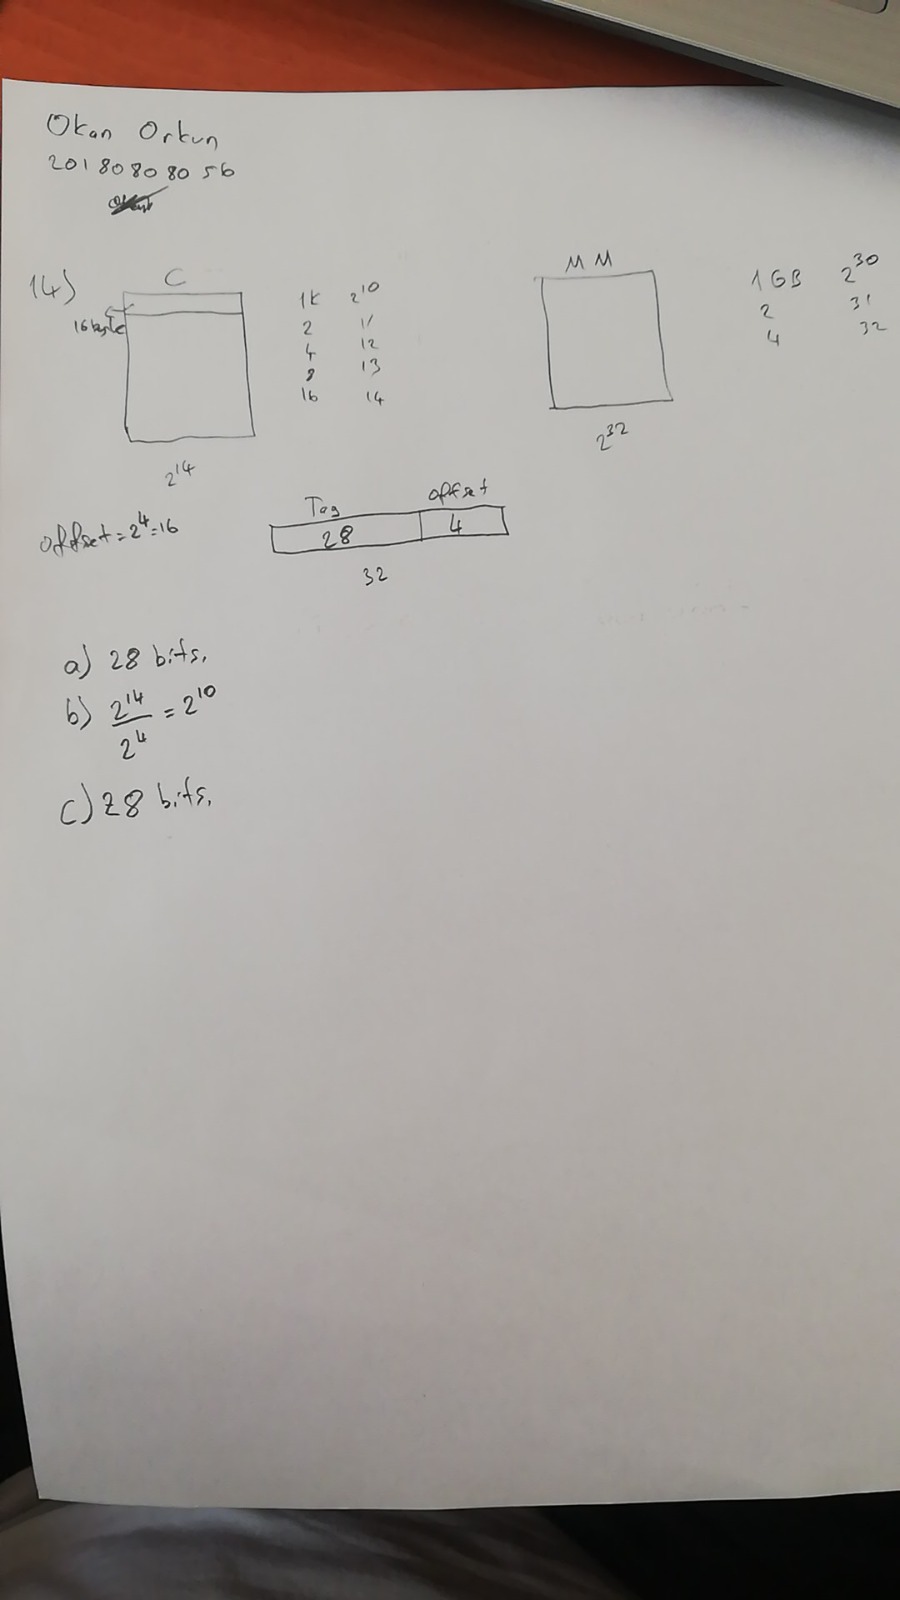 Okan Orkun
20180808056
14)
C
16 byte
2^14
1K 2^10
2 11
4 12
8 13
16 14
MM
2^32
1GB 2^30
2 31
4 32
offset = 2^4 = 16
Tag offset
28 4
32
a) 28 bits.
b) 2^14 / 2^4 = 2^10
c) 28 bits.